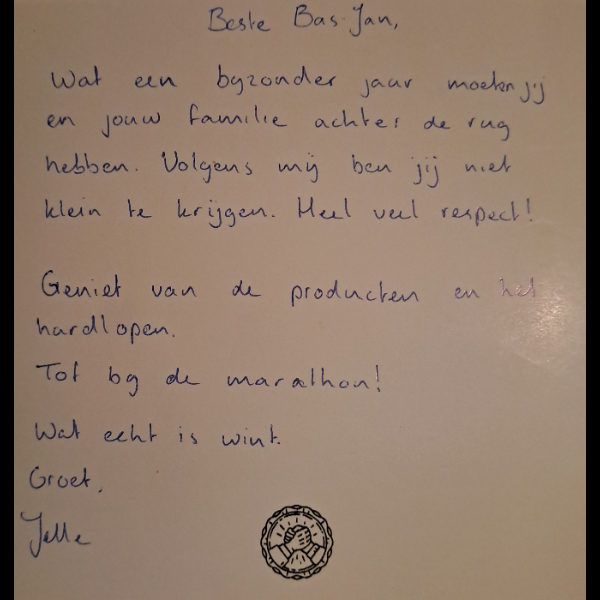 Beste Bas-Jan,
Wat een byzonder jaar moeten jij
en jouw familie achter de rug
hebben. Volgens mij ben jij niet
klein te krijgen. Heel veel respect!
Geniet van de producten en het
hardlopen.
Tot by de marathon!
Wat echt is wint.
Groet,
Jelle